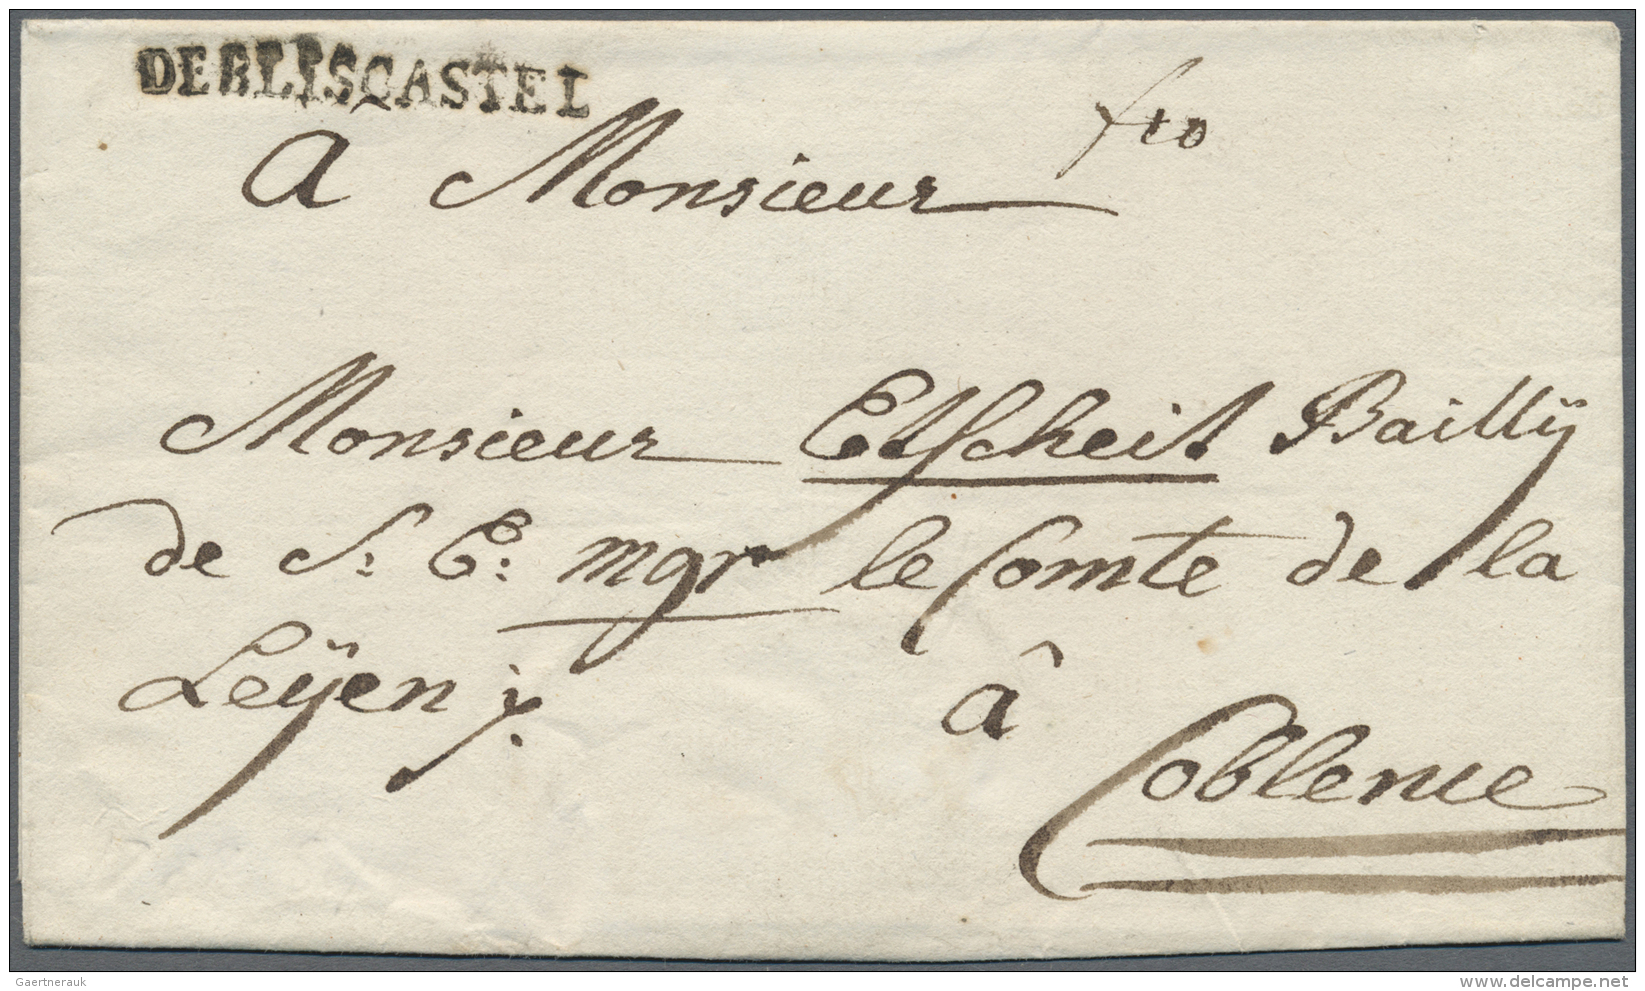 DEBLISCASTEL
fro
â Monsieur
Monsieur Etscheit Baillÿ
de S: E: mgr le Comte de la
Leÿen
â
Coblence
Gaertnerauk
www.delcampe.net